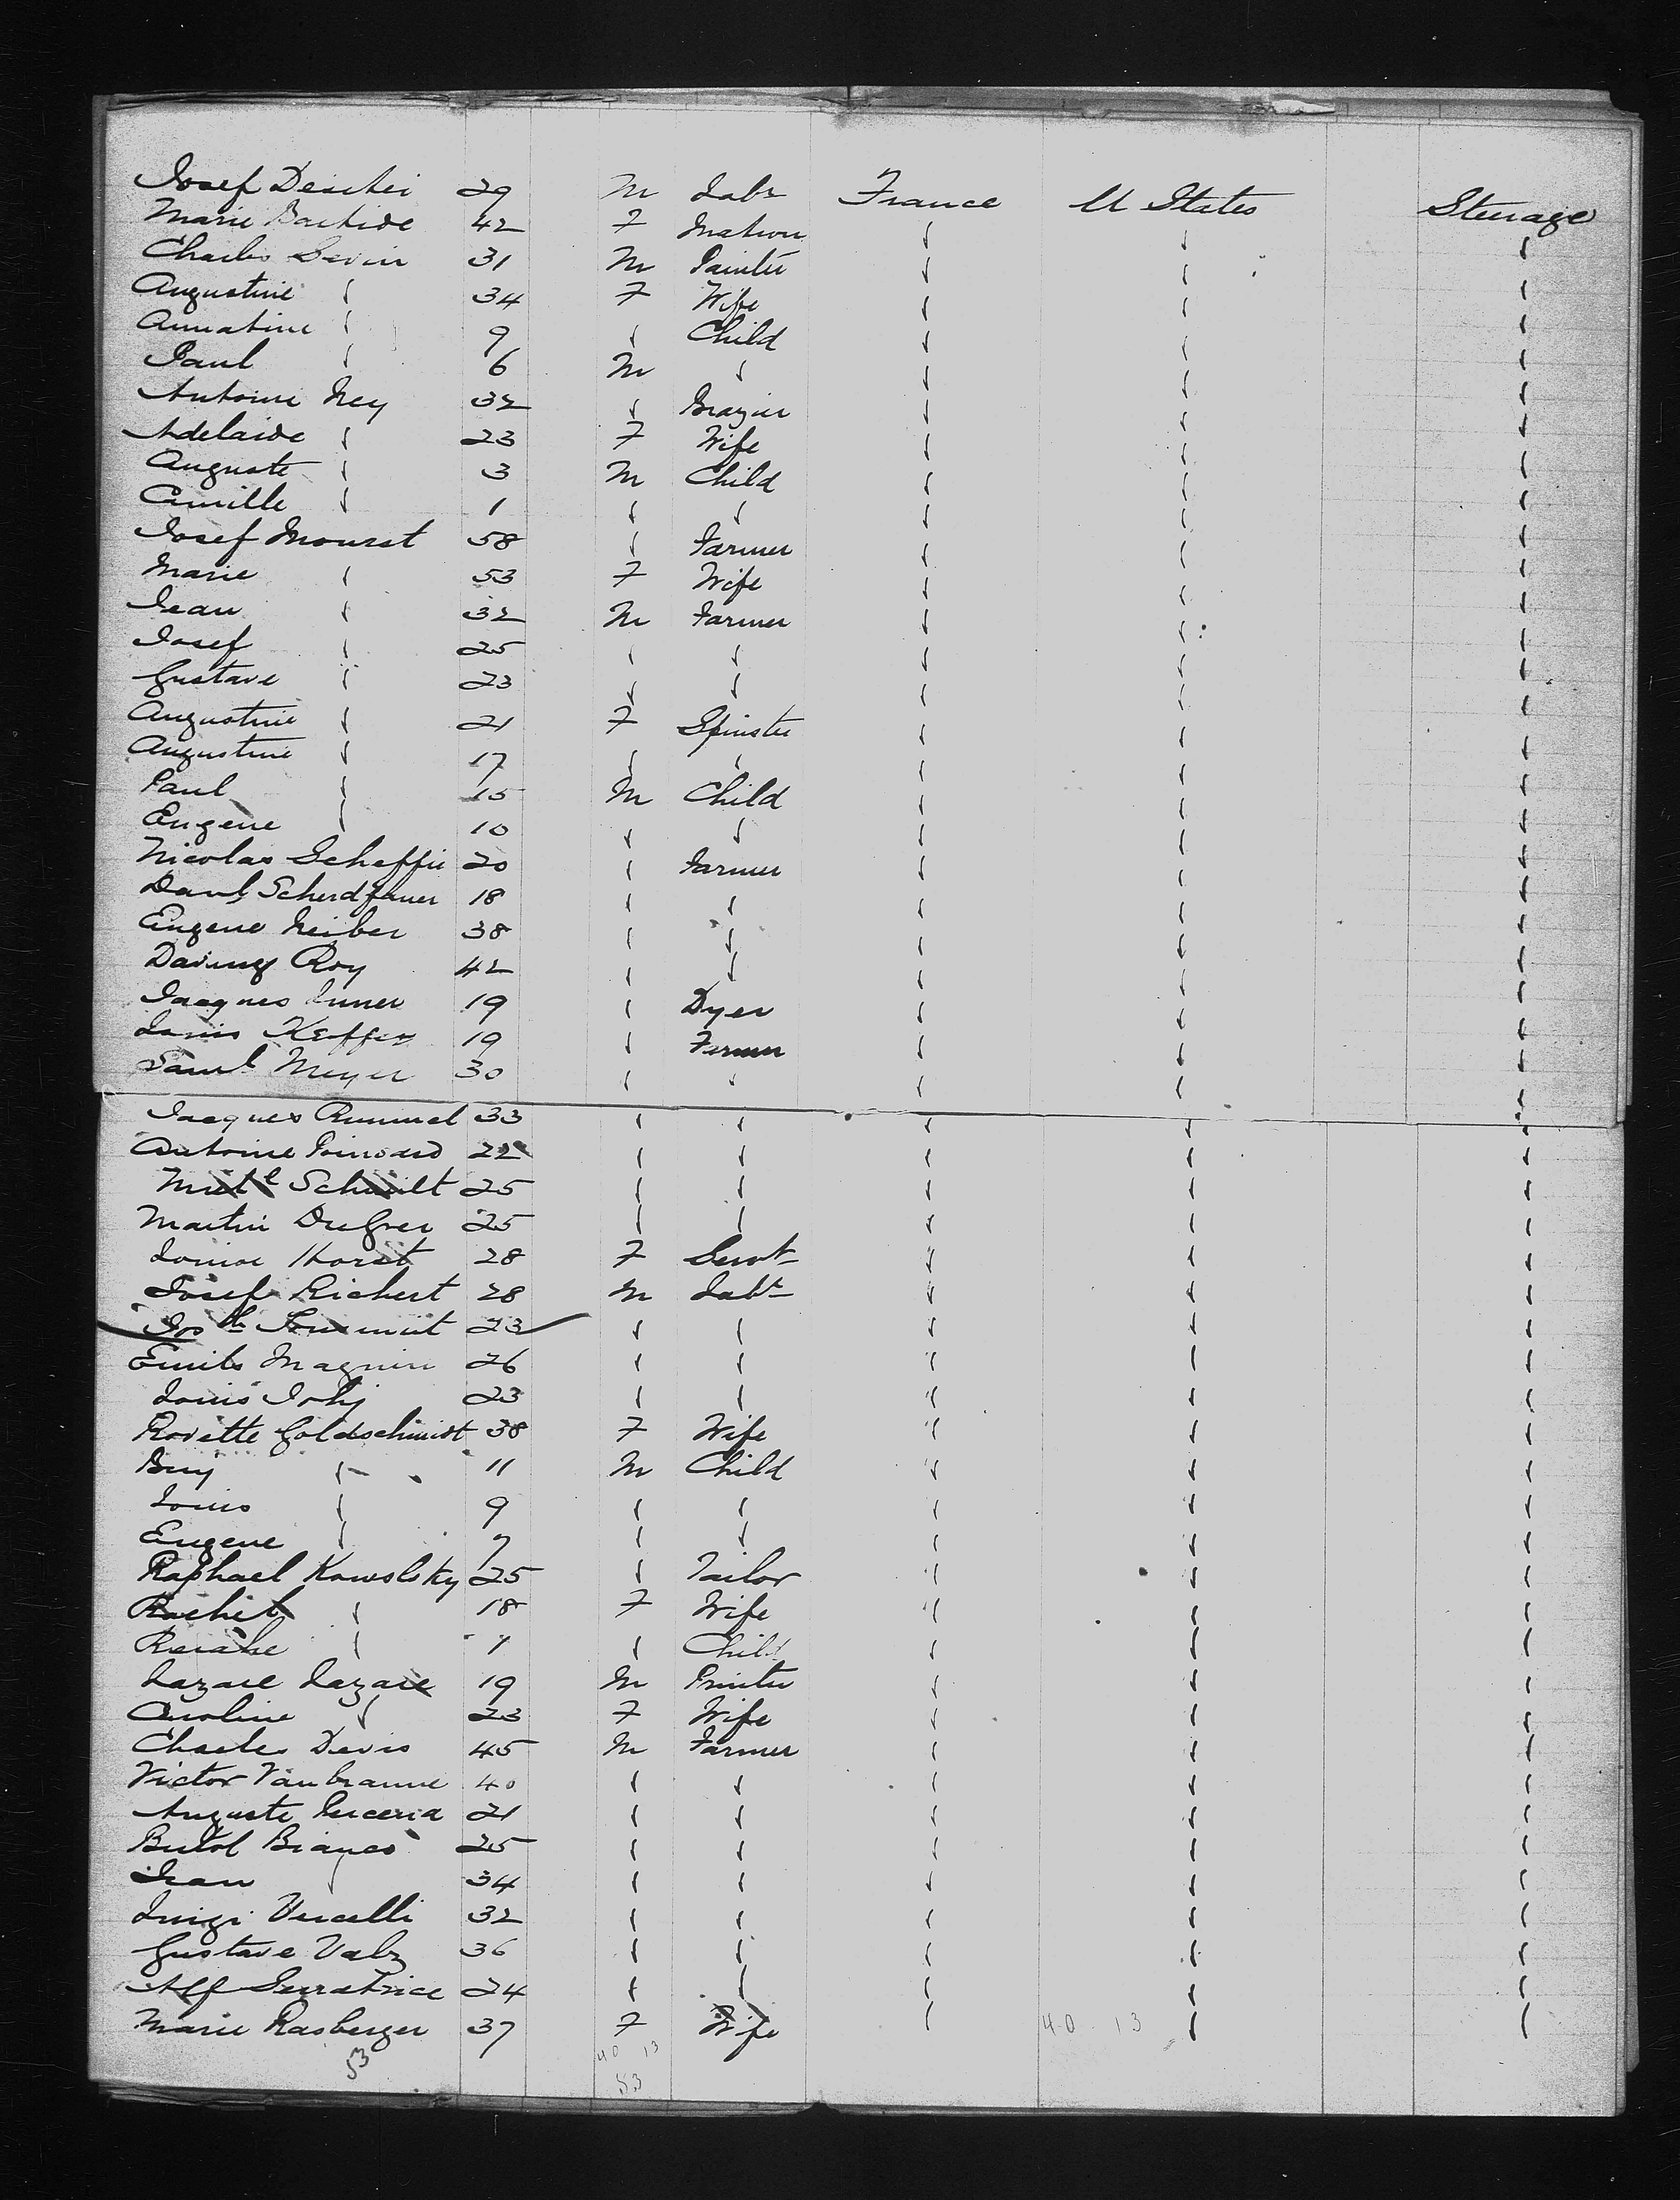 Josef 29 M Labr France U States Steerage
Marie Bastide 42 F Matron
Charles Sevin 31 M Painter
Augustine " 34 F Wife " " "
" 9 " Child " " "
Paul " 6 M " " " "
Antoine Ney 32 " Brazier " " "
Adelaide " 23 F Wife " " "
Auguste " 3 M Child " " "
Camille " 1 " " " " "
Josef Mourst 58 " Farmer " " "
Marie " 53 F Wife " " "
Jean " 32 M Farmer " " "
Josef " 25 " " " " "
Gustave " 23 " " " " "
Augustine " 21 F Spinster " " "
Augustine " 17 " " " " "
Paul " 15 M Child " " "
Eugene " 10 " " " " "
Nicolas Scheffer 20 " Farmer " " "
18 " " " " "
Eugene Neiber 38 " " " " "
Roy 42 " " " " "
Jacques 19 " Dyer " " "
Louis Keffer 19 " Farmer " " "
Saml Meyer 30 " " " " "
Jacques Rummel 33 " " " " "
Antoine Poinsard 22 " " " " "
Schmilt 25 " " " " "
Martin 25 " " " " "
Louise Horst 28 F Servt " " "
Josef Richert 28 M Labr " " "
Josh 23 " " " " "
Emile Magnin 26 " " " " "
Louis 23 " " " " "
Rosette Goldschmidt 38 F Wife " " "
Benj " 11 M Child " " "
Louis " 9 " " " " "
Eugene " 7 " " " " "
Raphael Kowolsky 25 " Tailor " " "
Rachel " 18 F Wife " " "
" 1 " Child " " "
Lazare Lazare 19 M Printer " " "
Caroline " 23 F Wife " " "
Charles Devis 45 M Farmer " " "
Victor 40 " " " " "
Auguste 21 " " " " "
Bianco 25 " " " " "
Jean " 34 " " " " "
Luigi Vercelli 32 " " " " "
Gustave Valz 36 " " " " "
Alf Serratrice 24 " " " " "
Marie Rasberger 37 F Wife " " "
40 13
53
40 13
53